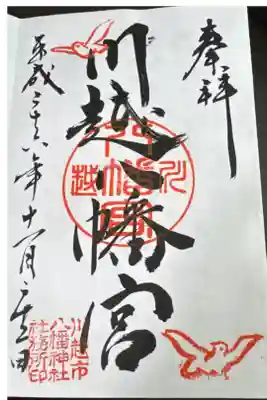 奉拝
川越八幡宮
平成二十六年十一月二十三日
川越市
八幡神社
社務所印